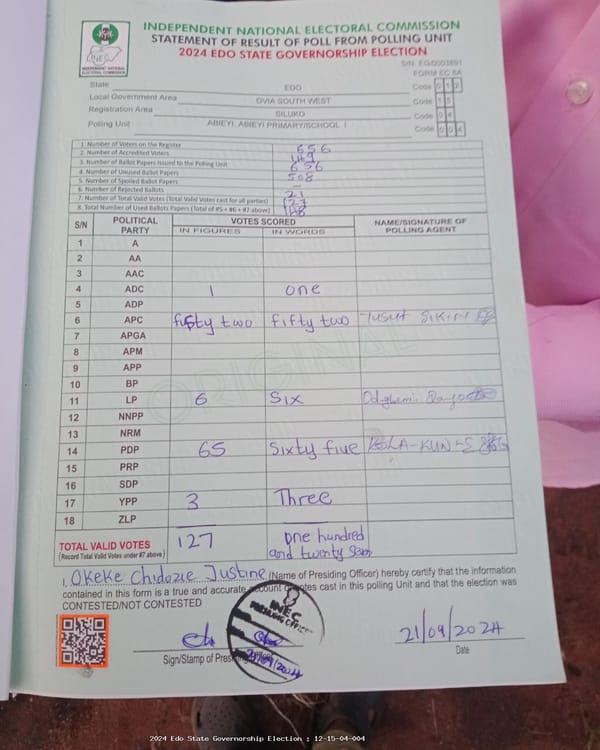 INEC
INDEPENDENT NATIONAL ELECTORAL COMMISSION
INDEPENDENT NATIONAL ELECTORAL COMMISSION
STATEMENT OF RESULT OF POLL FROM POLLING UNIT
2024 EDO STATE GOVERNORSHIP ELECTION
FORM EC 8A
State EDO Code 0 1 2
Local Government Area OVIA SOUTH WEST Code 1 5
Registration Area SILUKO Code 0 4
Polling Unit ABIEYI, ABIEYI PRIMARY/SCHOOL I Code 0 0 4
1. Number of Voters on the Register 656
2. Number of Accredited Voters 149
3. Number of Ballot Papers Issued to the Polling Unit 656
4. Number of Unused Ballot Papers 508
5. Number of Spoiled Ballot Papers –
6. Number of Rejected Ballots 21
7. Number of Total Valid Votes (Total Valid Votes cast for all parties) 127
8. Total Number of Used Ballots Papers (Total of #5 + #6 + #7 above) 148
S/N POLITICAL PARTY VOTES SCORED NAME/SIGNATURE OF POLLING AGENT
IN FIGURES IN WORDS
1 A
2 AA
3 AAC
4 ADC 1 one
5 ADP
6 APC fifty two fifty two
7 APGA
8 APM
9 APP
10 BP
11 LP 6 Six
12 NNPP
13 NRM
14 PDP 65 Sixty five
15 PRP
16 SDP
17 YPP 3 Three
18 ZLP
TOTAL VALID VOTES 127 one hundred
(Record Total Valid Votes under #7 above) and twenty
ORIGINAL
I, Okeke Chidozie Justine (Name of Presiding Officer) hereby certify that the information
contained in this form is a true and accurate account of votes cast in this polling Unit and that the election was
CONTESTED/NOT CONTESTED
INEC
PRESIDING OFFICER
21/09/2024
21/09/2024
Sign/Stamp of Presiding Officer Date
2024 Edo State Governorship Election : 12-15-04-004